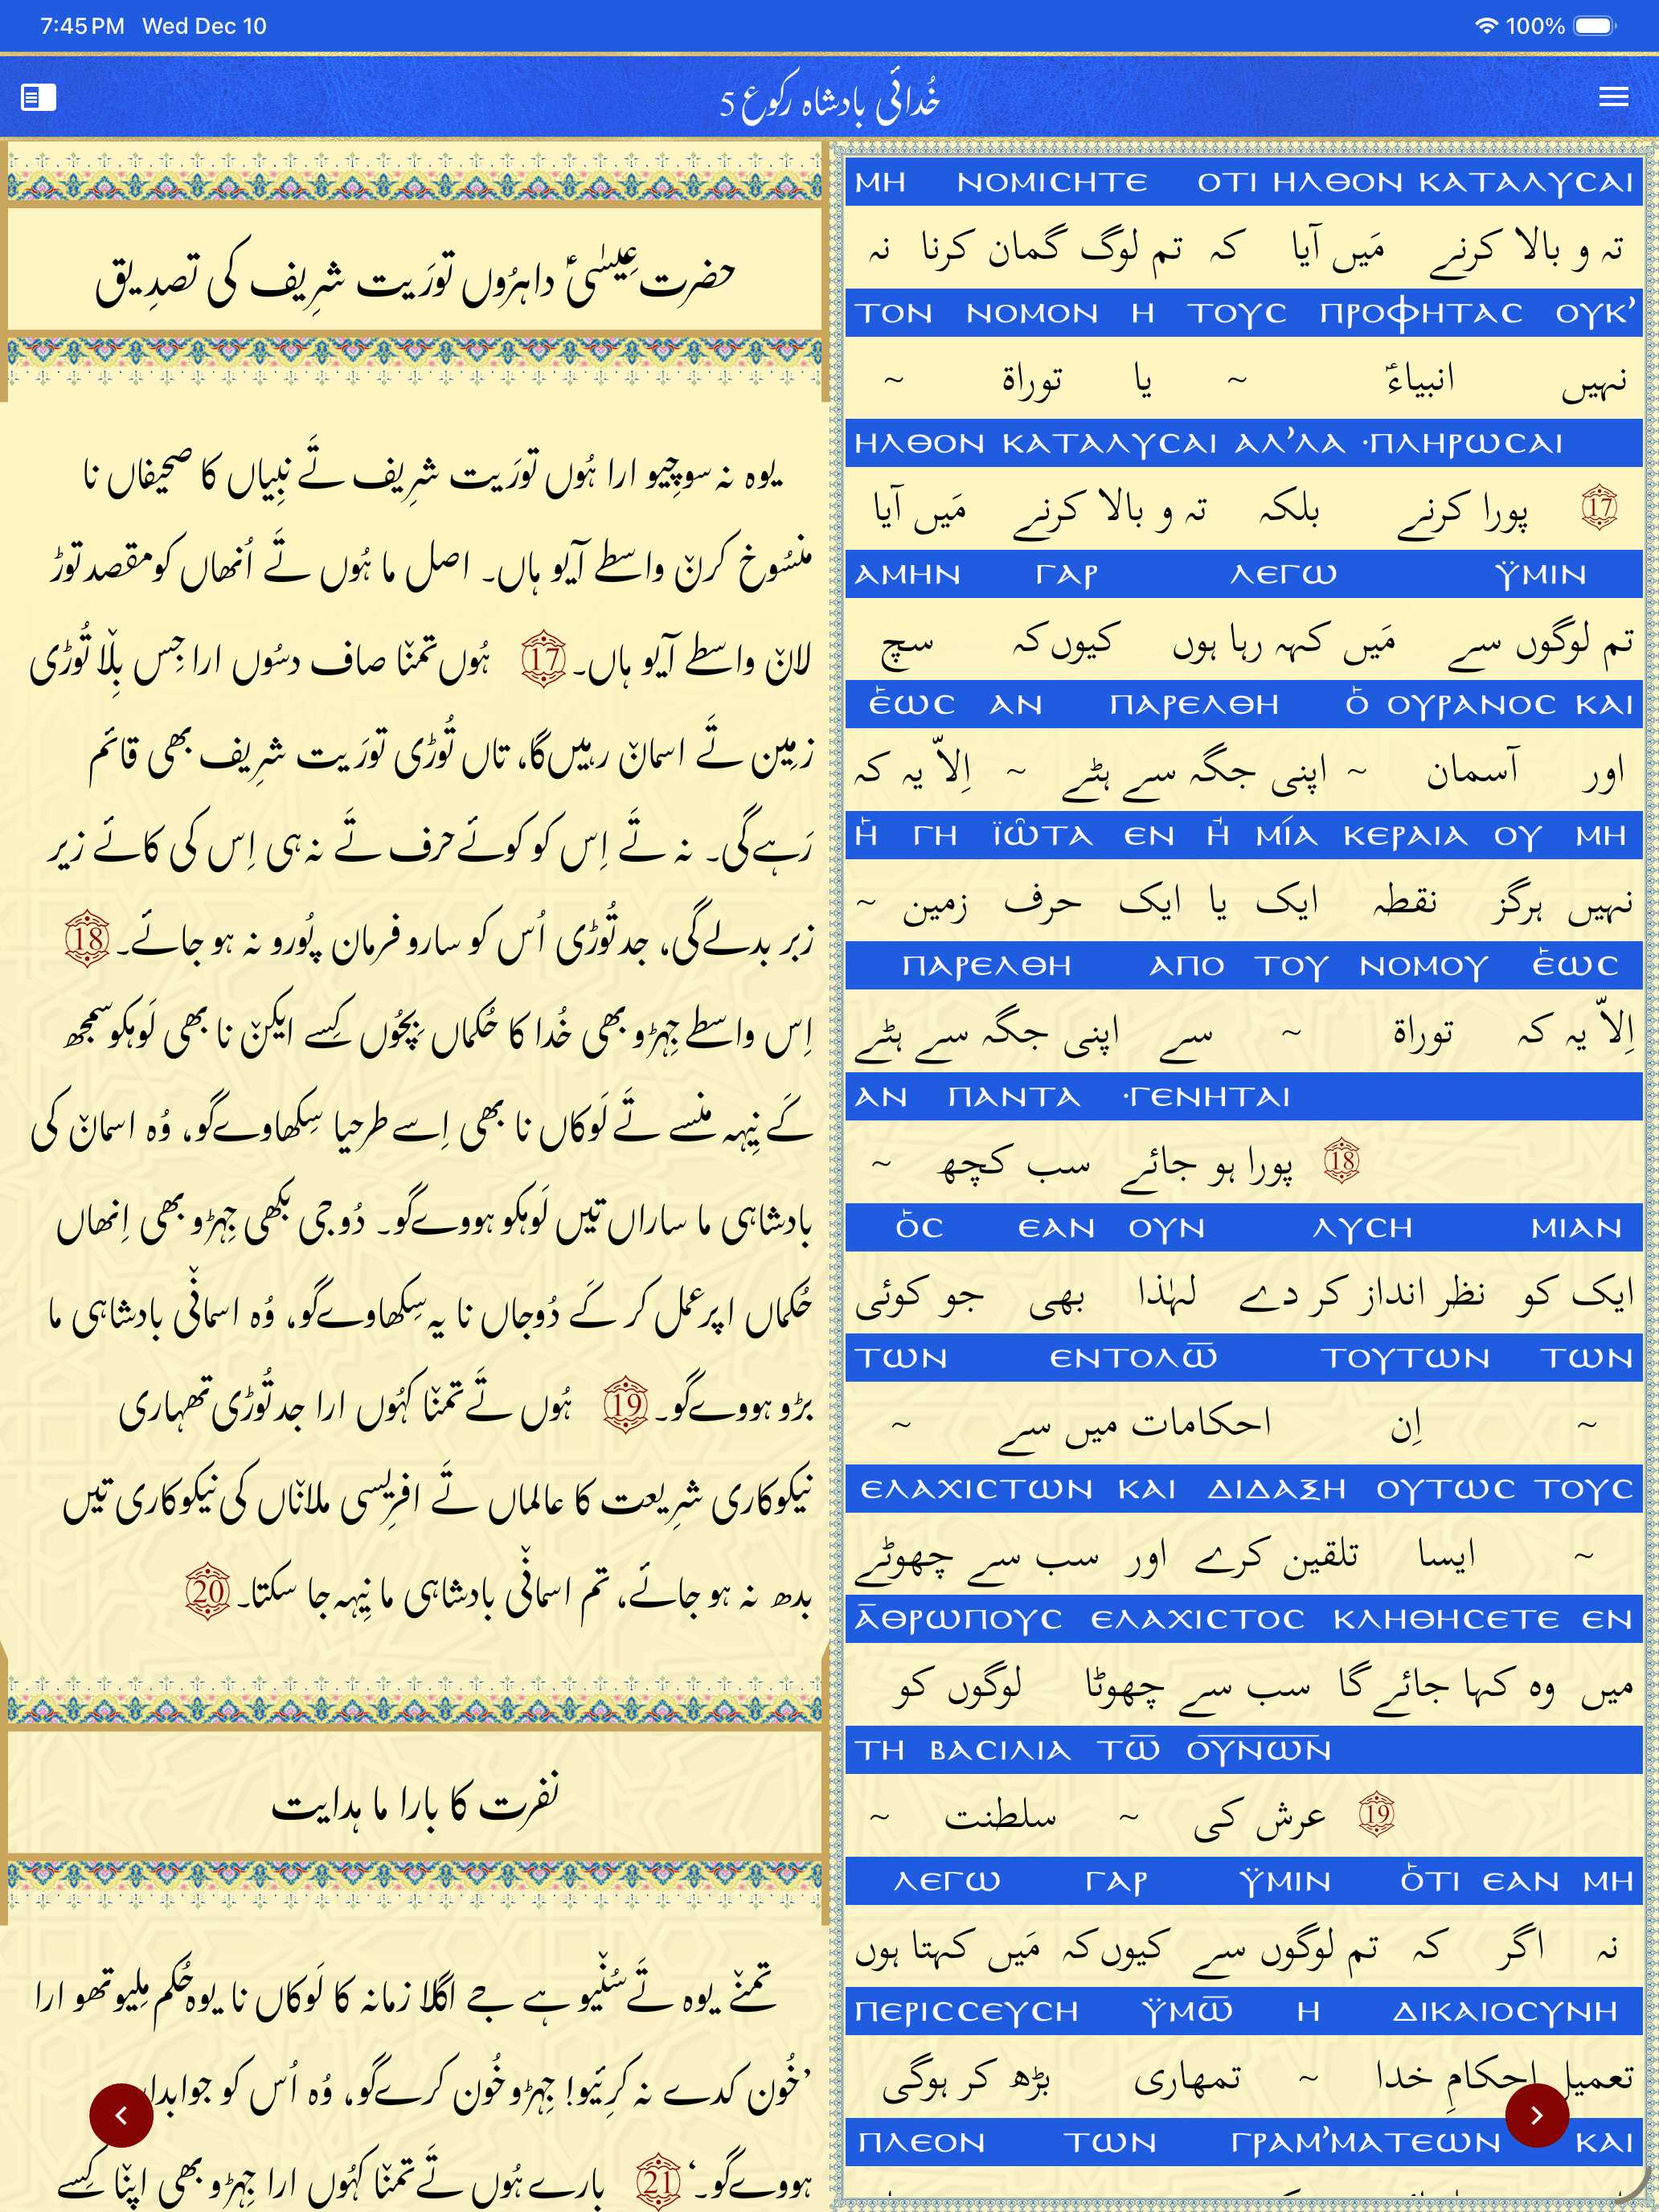 7:45 PM Wed Dec 10
100%
خُدائی بادشاہ رکوع 5
حضرت عِیسٰیؑ داہرُوں تورَیت شرِیف کی تصدِیق
یوہ نہ سوچِیو ارا ہُوں تورَیت شرِیف تَے نبِیاں کا صحِیفاں نا
منسُوخ کرنؕ واسطے آیو ہاں۔ اصل ما ہُوں تَے اُنھاں کو مقصد توڑ
لانؕ واسطے آیو ہاں۔ 17 ہُوں تمنؕا صاف دسُوں ارا جِس بِلؕا تُوڑی
زمِین تَے اسمانؕ رہیں گا، تاں تُوڑی تورَیت شرِیف بھی قائم
رَہے گی۔ نہ تَے اِس کو کوئے حرف تَے نہ ہی اِس کی کائے زیر
زبر بدلے گی، جد تُوڑی اُس کو سارو فرمان پُورو نہ ہو جائے۔ 18
اِس واسطے جِہڑو بھی خُدا کا حُکماں بِچُوں کِسے ایکنؕ نا بھی لَوہکو سمجھ
کَے نِیہہ منسے تَے لَوکاں نا بھی اِسے طرحیا سِکھاوے گو، وُہ اسمانؕ کی
بادشاہی ما ساراں تیں لَوہکو ہووے گو۔ دُوجی بکھی جِہڑو بھی اِنھاں
حُکماں اپر عمل کر کَے دُوجاں نا یہ سِکھاوے گو، وُہ اسمانؕی بادشاہی ما
بڑو ہووے گو۔ 19 ہُوں تَے تمنؕا کہُوں ارا جد تُوڑی تھہاری
نیکوکاری شرِیعت کا عالماں تَے افرِیسی ملانؕاں کی نیکوکاری تیں
بدھ نہ ہو جائے، تم اسمانؕی بادشاہی ما نِیہہ جا سکتا۔ 20
نفرت کا بارا ما ہدایت
تمنؕے یوہ تَے سُنؕیو ہے جے اگلا زمانہ کا لَوکاں نا یوہ حُکم مِلیو تھو ارا
’خُون کدے نہ کرِئیو! جِہڑو خُون کرے گو، وُہ اُس کو جوابدار
ہووے گو۔‘ 21 بارے ہُوں تَے تمنؕا کہُوں ارا جِہڑو بھی اپنؕا کِسے
ΜΗ ΝΟΜΙϹΗΤΕ ΟΤΙ ΗΛΘΟΝ ΚΑΤΑΛΥϹΑΙ
تہ و بالا کرنے مَیں آیا کہ تم لوگ گمان کرنا نہ
ΤΟΝ ΝΟΜΟΝ Η ΤΟΥϹ ΠΡΟΦΗΤΑϹ ΟΥΚ’
نہیں انبیاءؑ ~ یا توراۃ ~
ΗΛΘΟΝ ΚΑΤΑΛΥϹΑΙ ΑΛ’ΛΑ ·ΠΛΗΡΩϹΑΙ
17 پورا کرنے بلکہ تہ و بالا کرنے مَیں آیا
ΑΜΗΝ ΓΑΡ ΛΕΓΩ ΫΜΙΝ
تم لوگوں سے مَیں کہہ رہا ہوں کیوں کہ سچ
ἙΩϹ ΑΝ ΠΑΡΕΛΘΗ Ὁ ΟΥΡΑΝΟϹ ΚΑΙ
اور آسمان ~ اپنی جگہ سے ہٹے ~ اِلاّ یہ کہ
Ἡ ΓΗ ΪΩ͂ΤΑ ΕΝ Ἠ ΜΊΑ ΚΕΡΑΙΑ ΟΥ ΜΗ
نہیں ہرگز نقطہ ایک یا ایک حرف زمین ~
ΠΑΡΕΛΘΗ ΑΠΟ ΤΟΥ ΝΟΜΟΥ ἙΩϹ
اِلاّ یہ کہ توراۃ ~ سے اپنی جگہ سے ہٹے
ΑΝ ΠΑΝΤΑ ·ΓΕΝΗΤΑΙ
18 پورا ہو جائے سب کچھ ~
ὉϹ ΕΑΝ ΟΥΝ ΛΥϹΗ ΜΙΑΝ
ایک کو نظر انداز کر دے لہٰذا بھی جو کوئی
ΤΩΝ ΕΝΤΟΛΩ̅ ΤΟΥΤΩΝ ΤΩΝ
~ اِن احکامات میں سے ~
ΕΛΑΧΙϹΤΩΝ ΚΑΙ ΔΙΔΑΞΗ ΟΥΤΩϹ ΤΟΥϹ
~ ایسا تلقین کرے اور سب سے چھوٹے
Α̅ΘΡΩΠΟΥϹ ΕΛΑΧΙϹΤΟϹ ΚΛΗΘΗϹΕΤΕ ΕΝ
میں وہ کہا جائے گا سب سے چھوٹا لوگوں کو
ΤΗ ΒΑϹΙΛΙΑ ΤΩ̅ Ο̅Υ̅Ν̅Ω̅Ν̅
19 عرش کی ~ سلطنت ~
ΛΕΓΩ ΓΑΡ ΫΜΙΝ ὉΤΙ ΕΑΝ ΜΗ
نہ اگر کہ تم لوگوں سے کیوں کہ مَیں کہتا ہوں
ΠΕΡΙϹϹΕΥϹΗ ΫΜΩ̅ Η ΔΙΚΑΙΟϹΥΝΗ
تعمیلِ احکامِ خدا ~ تمھاری بڑھ کر ہوگی
ΠΛΕΟΝ ΤΩΝ ΓΡΑΜ’ΜΑΤΕΩΝ ΚΑΙ